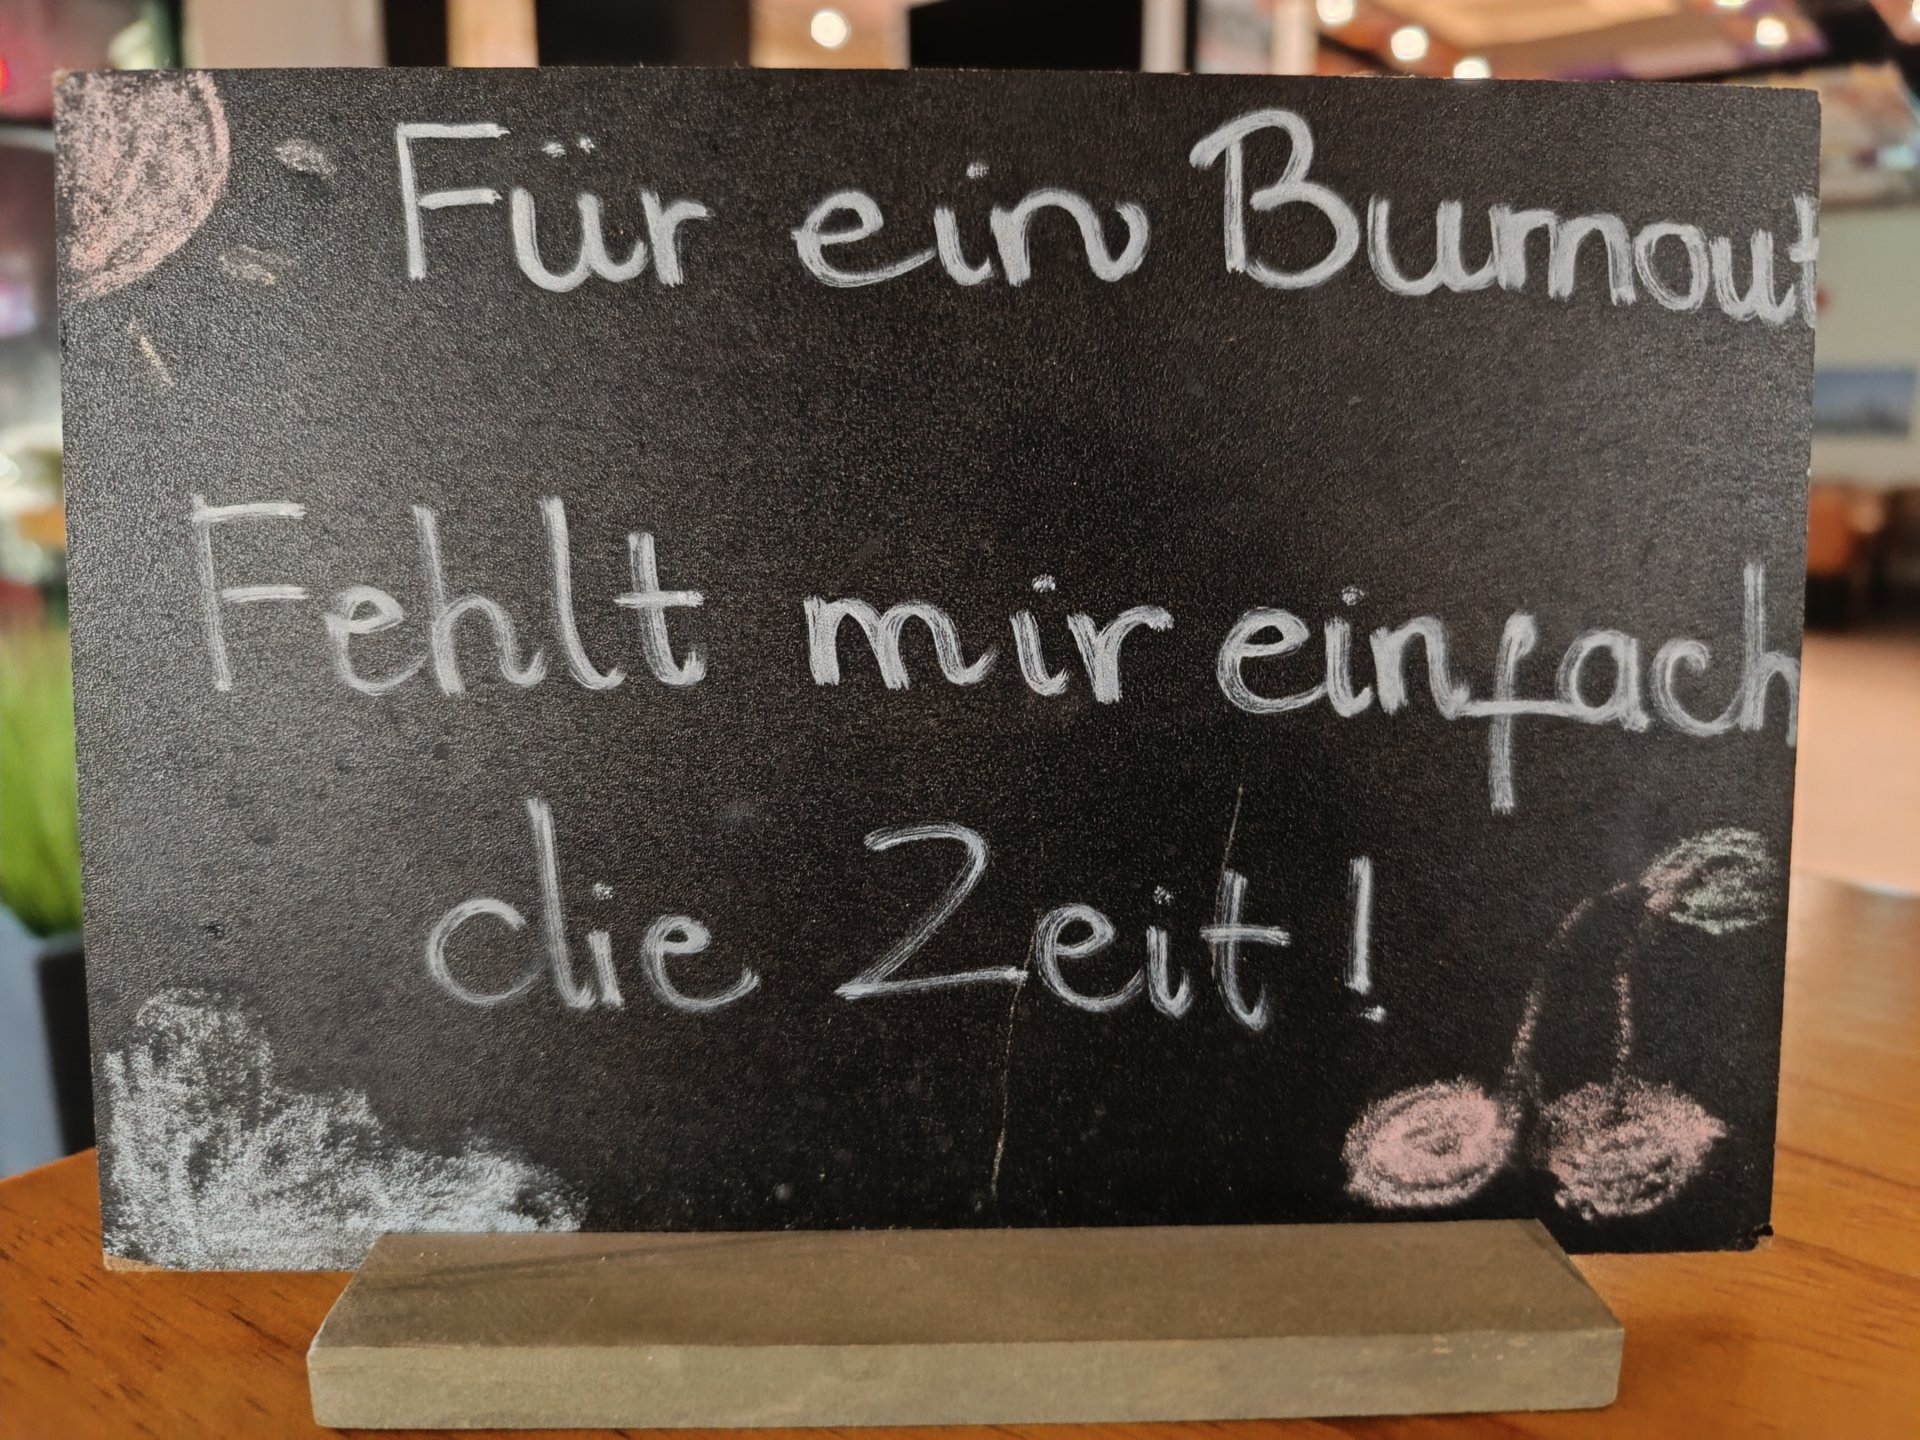 Für ein Burnout
Fehlt mir einfach
die Zeit!